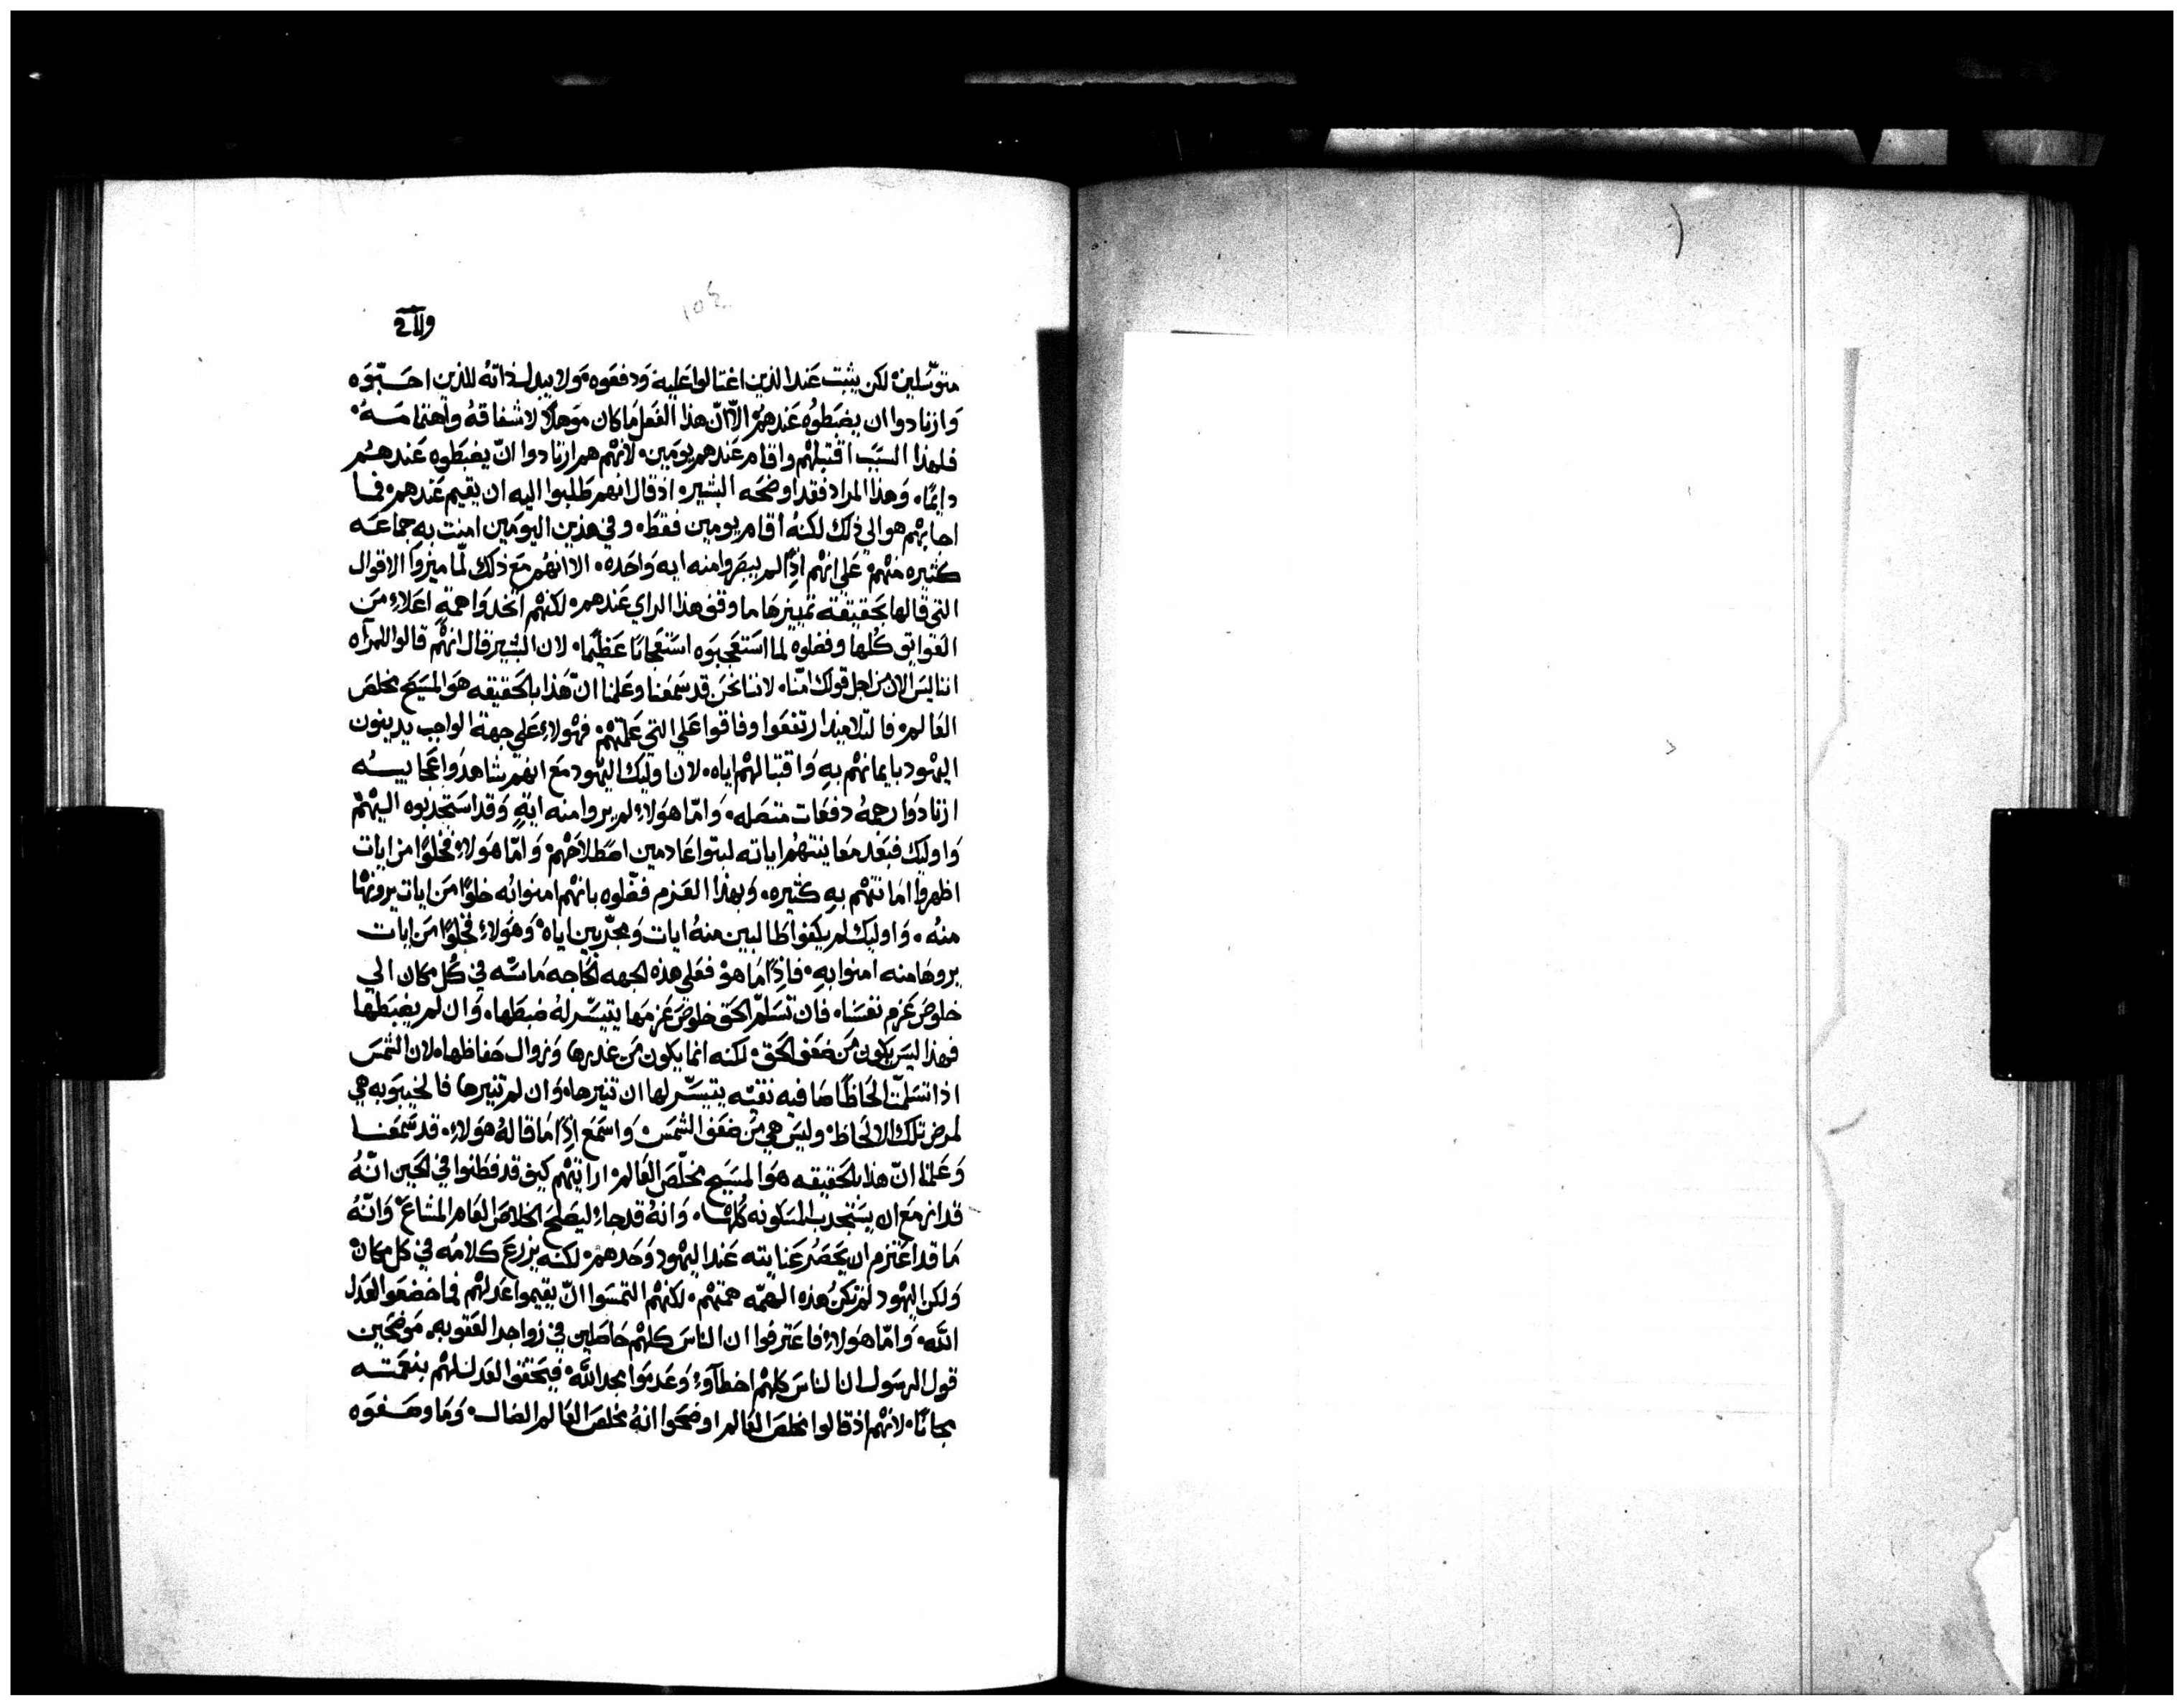 ١٥٤
متوسلين. لكن يثبت عند الذين اغتالوا عليه ودفعوه. ولا يبدل ذاته للذين احبّوه
وارتادوا ان يضبطوه عندهم. الّا انّ هذا الفعل ما كان موهلًا لاشفاقه واهتمامه.
فلهذا السبب اقتبلهم واقام عندهم يومين. لانهم هم ارتادوا انّ يضبطوه عندهم
دايمًا. وهذا المراد فقد اوضحه البشير. اذ قال انهم طلبوا اليه ان يقيم عندهم. فما
اجابهم هو الي ذلك لكنه اقام يومين فقط. وفي هذين اليومين امنت به جماعه
كثيره منهم. علي انهم اذًا لم يبصروا منه ايه واحده. الا انهم مع ذلك لمّا ميزوا الاقوال
التي قالها بحقيقة تمييزها ما وقف هذا الراي عندهم. لكنهم اتخدوا همة اعلاء من
العوايق كلها وفضلوه لما استعجبوه استعجابًا عظيمًا. لان البشير قال انهم قالوا للمرآه
اننا ليس الان من اجل قولك امنّا. لاننا نحن قد سمعنا وعلمنا انّ هذا بالحقيقه هو المسيح مخلص
العالم. فالتلاميذ ارتفعوا وفاقوا علي التي علمتهم. فهولاء علي جهة الواجب يدينون
اليهود بايمانهم به واقتبالهم اياه. لان اوليك اليهود مع انهم شاهدوا عجايبه
ارتادوا رجمه دفعات متصله. وامّا هولاء لم يروا منه اية وقد استجدبوه اليهم
واوليك فبعد معاينتهم اياته لبتوا عادمين اصطلاحهم. وامّا هولاء فخلوًا من ايات
اظهروا امانتهم به كثيره. وبهذا العزم فضّلوه بانهم امنوا به خلوًا من ايات يرونها
منه. واوليك لم يكفوا طالبين منه ايات ومجرّبين اياه. وهولاء فخلوًا من ايات
يروها منه امنوا به. فاذًا ما هو فعلي هذه الجهه الحاجه ماسّه في كل مكان الي
خلوص عزم نفسنا. فان تسلّم الحق خلوص عزمها يتيسّر له ضبطها. وان لم يضبطها
فهذا ليس يكون من ضعف الحق. لكنه انما يكون من غدرها وزوال حفاظها. لان الشمس
اذا تسلمت الحاظًا صافيه نقيّه يتيسّر لها ان تنيرها. وان لم تنيرها فالخيبوبه هي
لمرض تلك الالحاظ. وليس هي من ضعف الشمس واسمع اذًا ما قاله هولاء. قد سمعنا
وعلمنا انّ هذا بالحقيقه هو المسيح مخلّص العالم. ارايتهم كيف قد فطنوا في الحين انّه
قد ازمع ان يستجدب المسكونه كلها. وانه قد جاء ليصلح الخلاص العام المشاع. وانّه
ما قد اعتزم ان يحصر عنايته عند اليهود وحدهم. لكنه يزرع كلامه في كل مكان
ولكن اليهود لم تكن هذه الهمّه همتهم. لكنهم التمسوا انّ يقيموا عدلهم فما خضعوا لعدل
الله. وامّا هولاء فاعترفوا ان الناس كلهم حاصلين في زواجر العقوبه. موضحين
قول الرسول ان الناس كلهم اخطآوا وعدموا مجد الله. فيتحقق العدل لهم بنعمته
مجانًا. لانهم اذ قالوا مخلص العالم اوضحوا انه مخلص العالم الضال. وما وصفوه